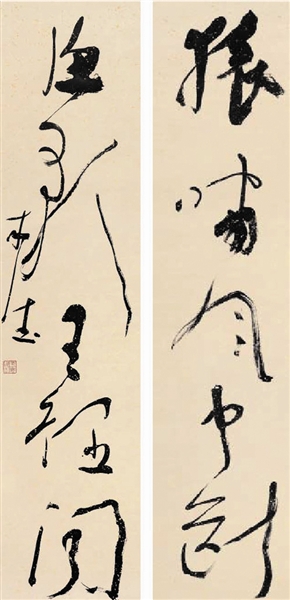 猿嘯風中斷
漁歌月裡聞